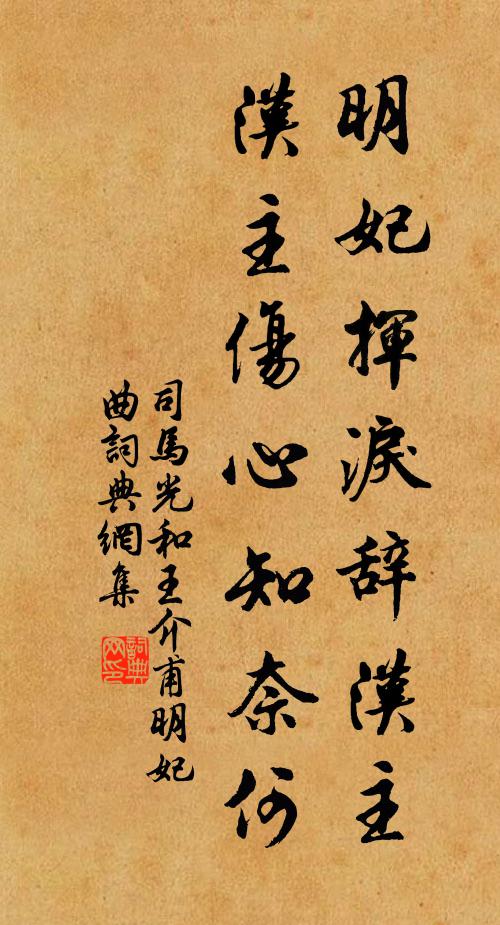 明妃揮淚辞漢主
漢主傷心知奈何
司馬光和王介甫明妃
曲詞典網集
詞典网印